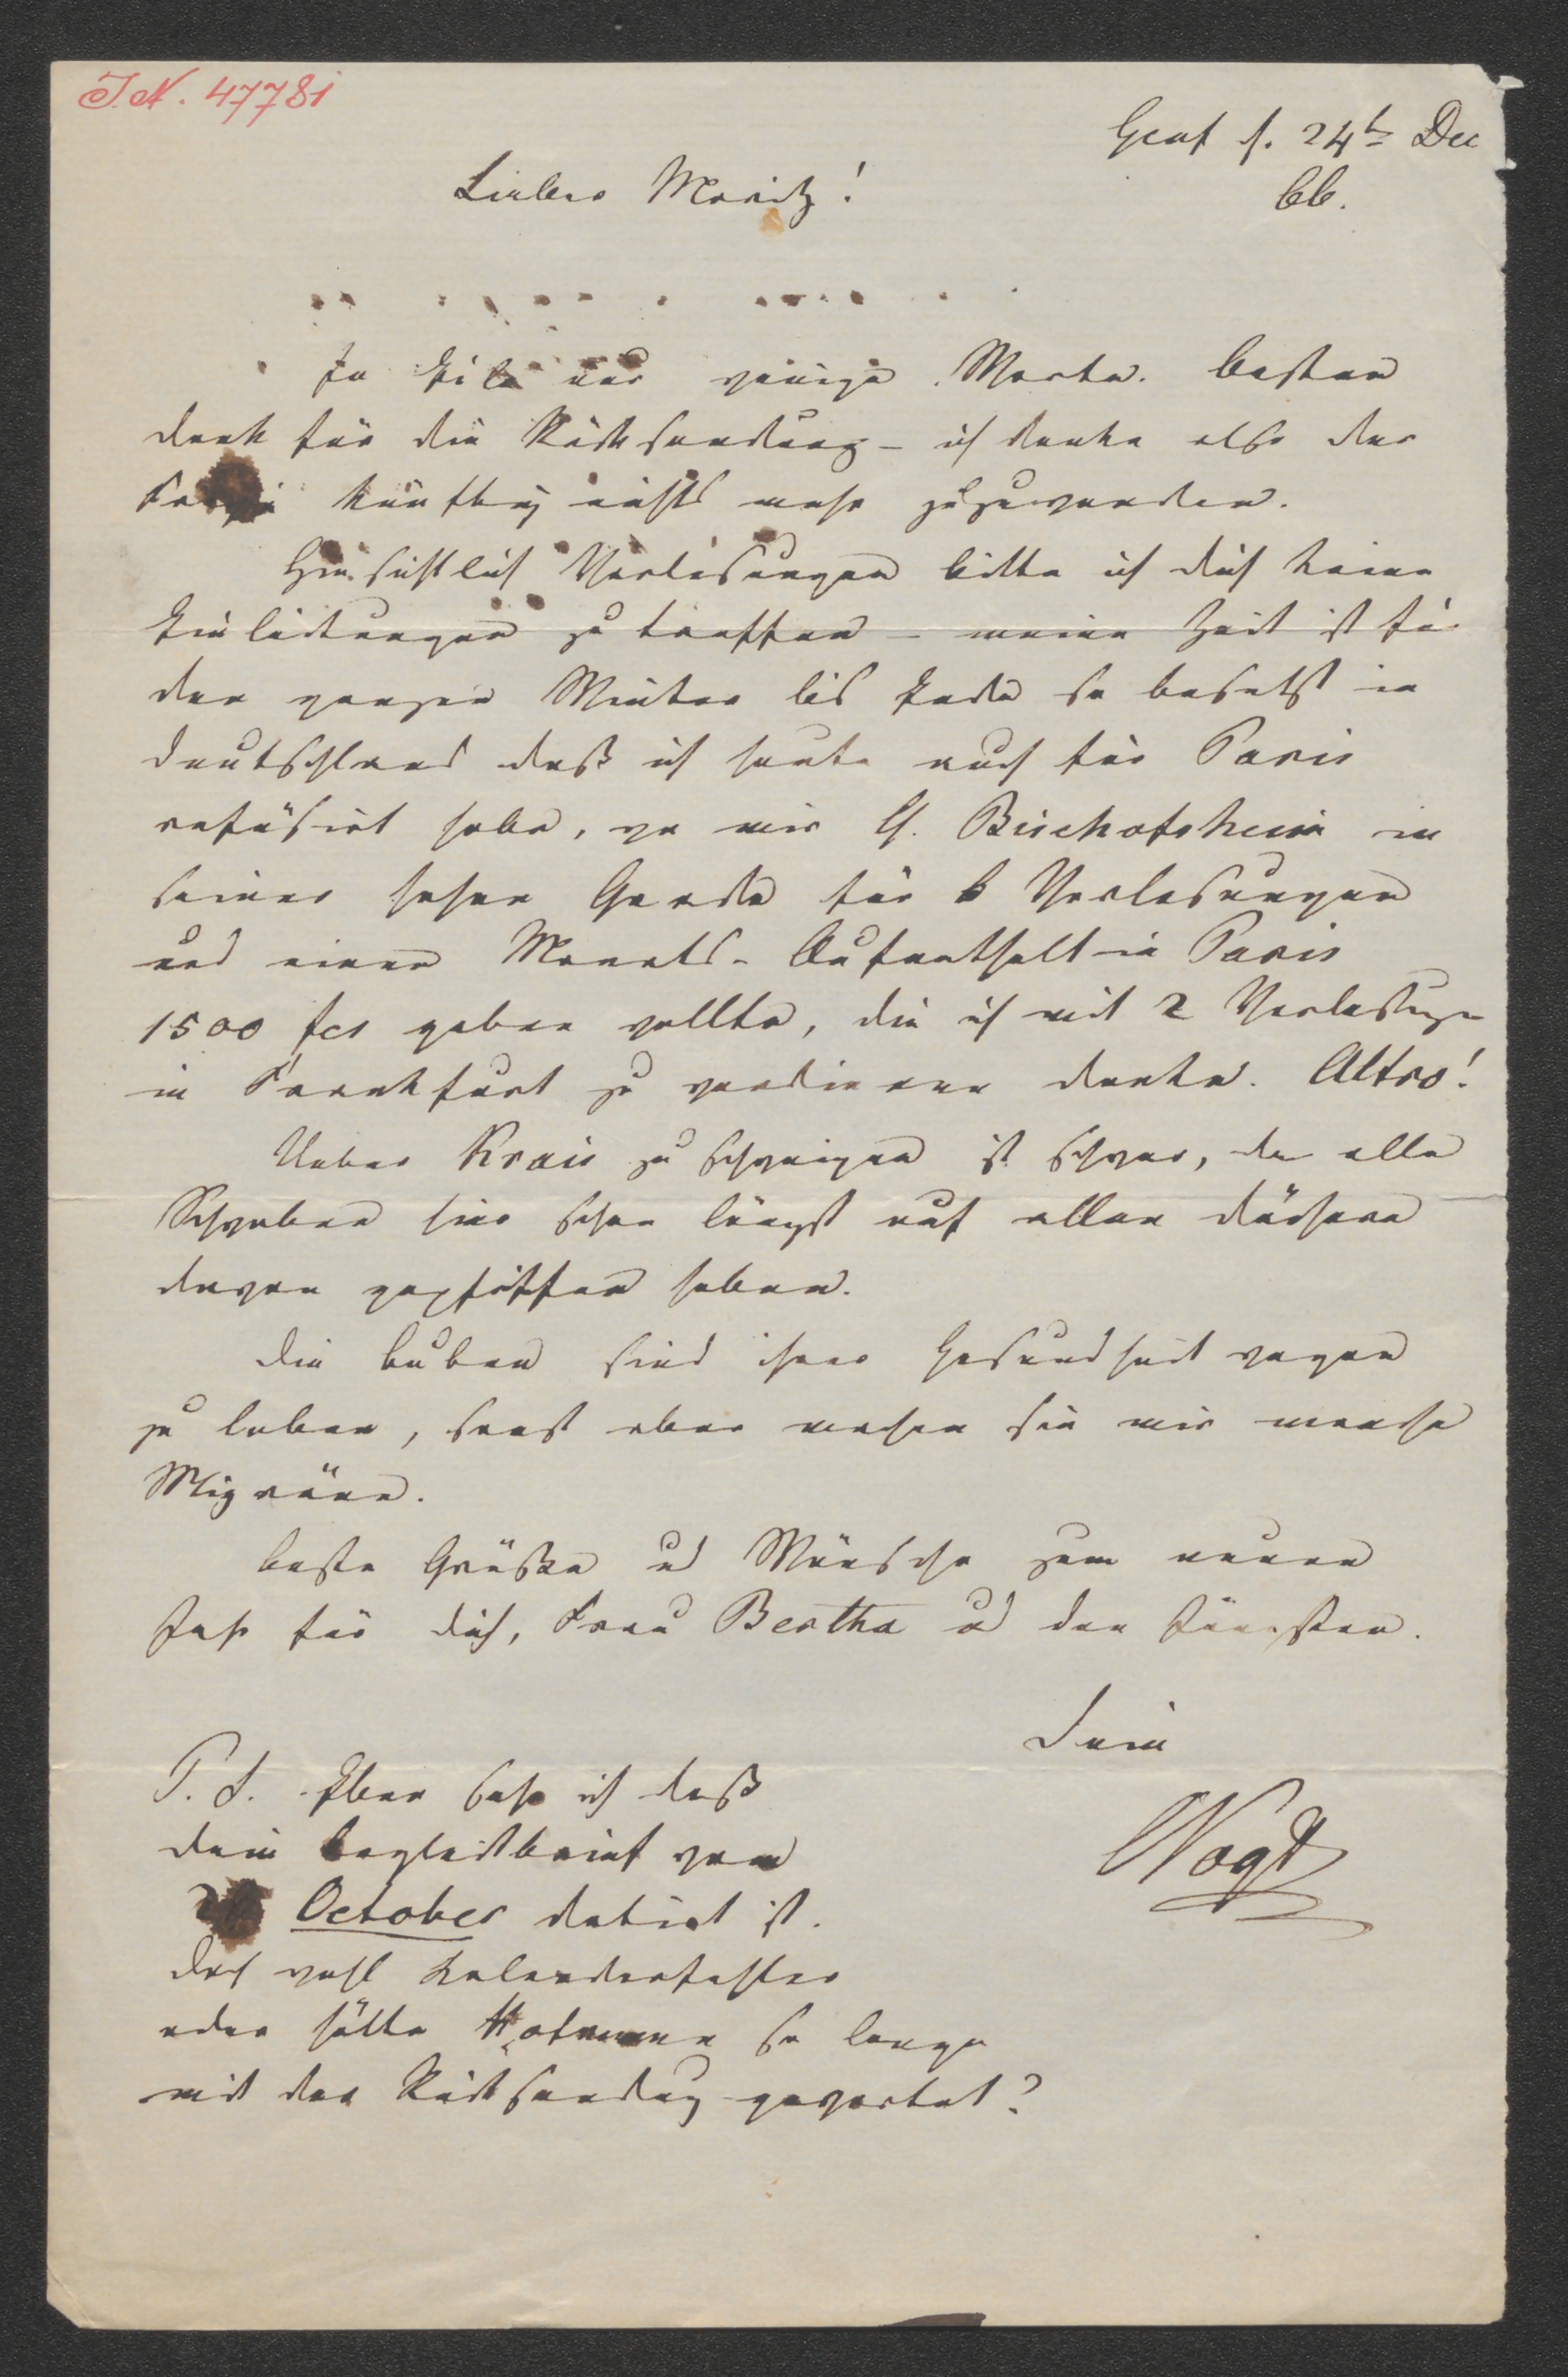 I.N. 47781
Genf d. 24t Dec
66.
Lieber Moritz!
In Eile nur wenige Worte. Besten
Dank für die Rücksendung – ich denke also der
künftig nichts mehr zuzuwenden.
Hinsichtlich Vorlesungen bitte ich dich keine
Einleitungen zu treffen – meine Zeit ist für
den ganzen Winter bis Ende so besetzt in
Deutschland daß ich heute auch für Paris
refüsirt habe, wo mir H. Bischofsheim in
seiner hohen Gnade für 6 Vorlesungen
und einen Monats-Aufenthalt in Paris
1500 fcs geben wollte, die ich mit 2 Vorlesungen
in Frankfurt zu verdienen denke. Altro!
Ueber Krais zu schweigen ist schwer, da alle
Schwaben hier schon längst auf allen Dächern
davon gepfiffen haben.
Die Buben sind ihrer Gesundheit wegen
zu loben, sonst aber machen sie mir manche
Migräne.
Beste Grüße und Wünsche zum neuen
Jahr für dich, Frau Bertha und den Jüngsten.
Dein
CVogt
P.S. Eben sehe ich daß
dein Begleitbrief vom
October datirt ist.
Doch wohl Kalenderfehler
oder hätte so lange
mit der Rücksendung gewartet?